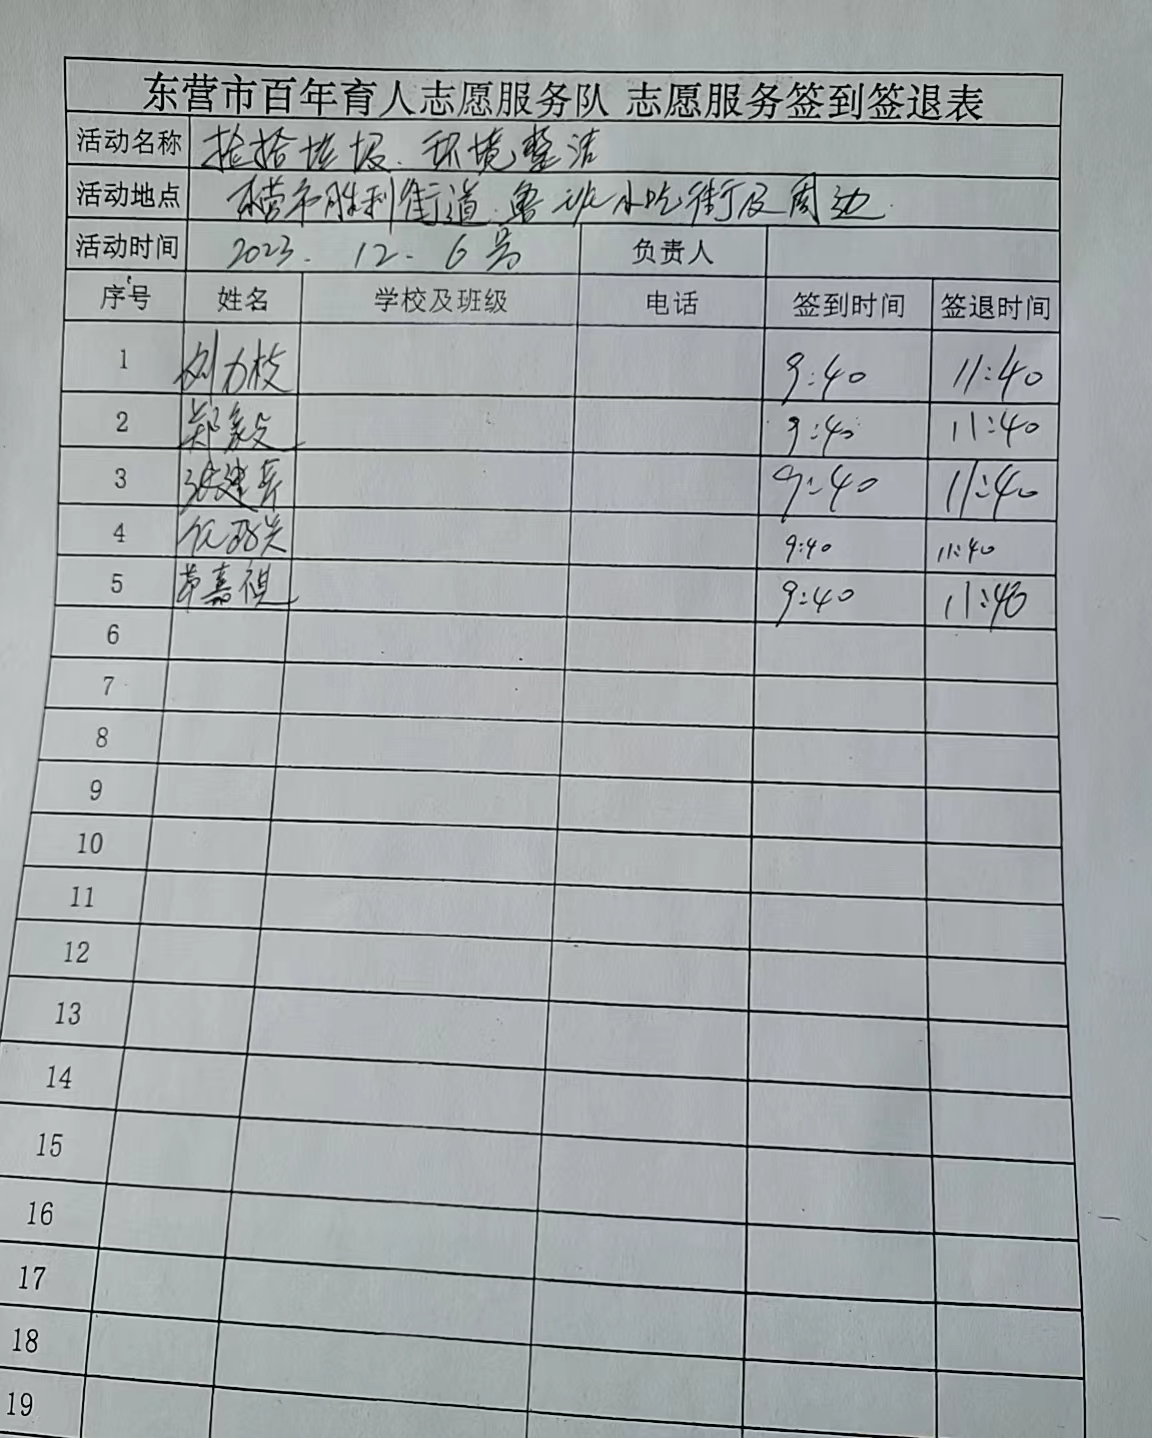 东营市百年育人志愿服务队 志愿服务签到签退表
活动名称 捡拾垃圾、环境整洁
活动地点 东营市胜利街道鲁班小吃街及周边
活动时间 2023. 12. 6号 负责人
序号 姓名 学校及班级 电话 签到时间 签退时间
1 刘力枝 9:40 11:40
2 郑毅 9:40 11:40
3 9:40 11:40
4 9:40 11:40
5 嘉祺 9:40 11:40
6
7
8
9
10
11
12
13
14
15
16
17
18
19